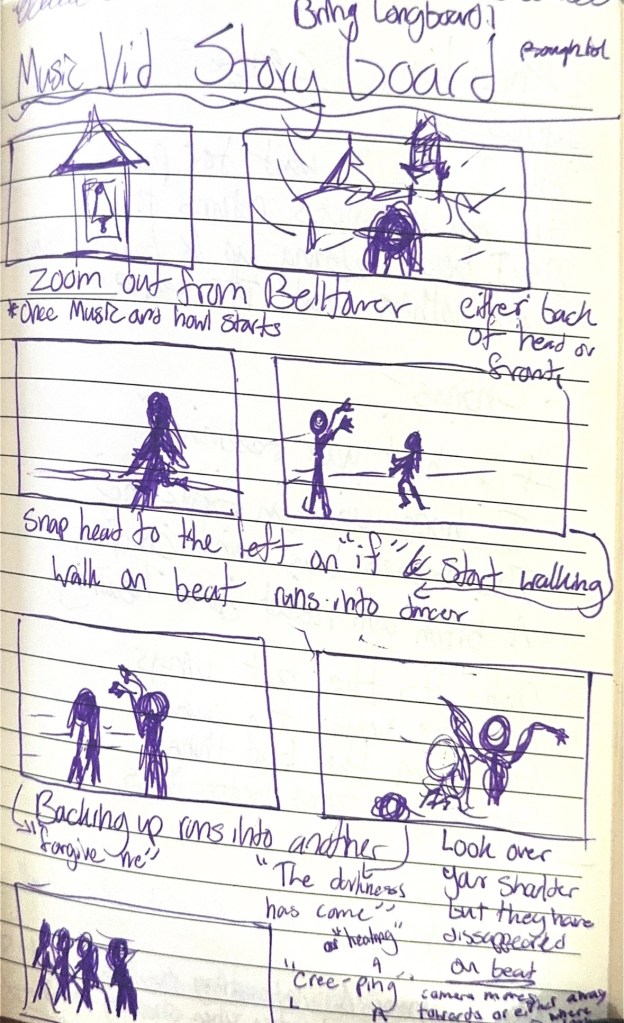 Bring Longboard!
Music Vid Story board
zoom out from Belltower
*once Music and howl starts
either back
of head or
front
snap head to the left on "if" & start walking
walk on beat runs into dancer
Backing up runs into another
"forgive me"
"The darkness
has come"
"healing"
"cree-ping
Look over
your shoulder
but they have
dissappeared
on beat
camera moves
towards or
away